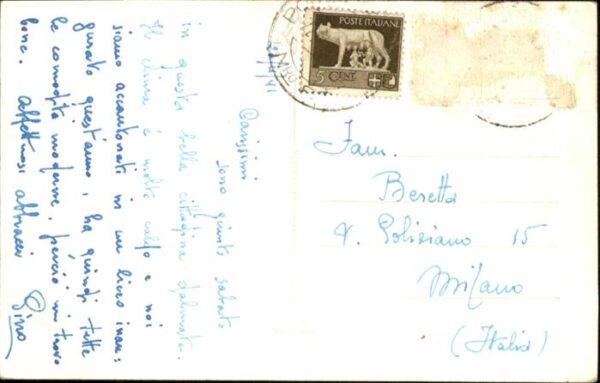 Carissimi
sono giunto sabato
in questa bella cittadina dalmata.
Il clima è molto caldo e noi
siamo accantonati in un liceo inau=
gurato quest'anno, ha quindi tutte
le comodità moderne, perciò mi trovo
bene. Affettuosi abbracci
Gino
POSTE ITALIANE
5 CENT.
Fam.
Beretta
V. Poliziano 15
Milano
(Italia)